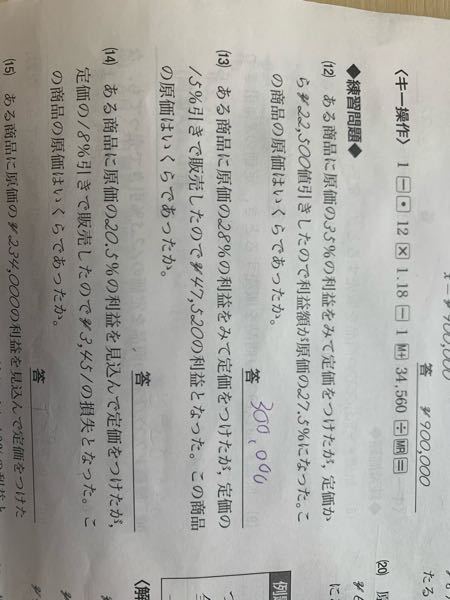 答 ¥900,000
〈キー操作〉 1 − • 12 × 1.18 − 1 M+ 34,560 ÷ MR =
◆練習問題◆
(12) ある商品に原価の35%の利益をみて定価をつけたが, 定価か
ら¥22,500値引きしたので利益額が原価の27.5%になった。こ
の商品の原価はいくらであったか。
答 300,000
(13) ある商品に原価の28%の利益をみて定価をつけたが, 定価の
15%引きで販売したので¥47,520の利益となった。この商品
の原価はいくらであったか。
答
(14) ある商品に原価の20.5%の利益を見込んで定価をつけたが,
定価の18%引きで販売したので¥3,451の損失となった。こ
の商品の原価はいくらであったか。
答
(15) ある商品に原価の¥234,000の利益を見込んで定価をつけた
(20)
たる
に
例題
〈解